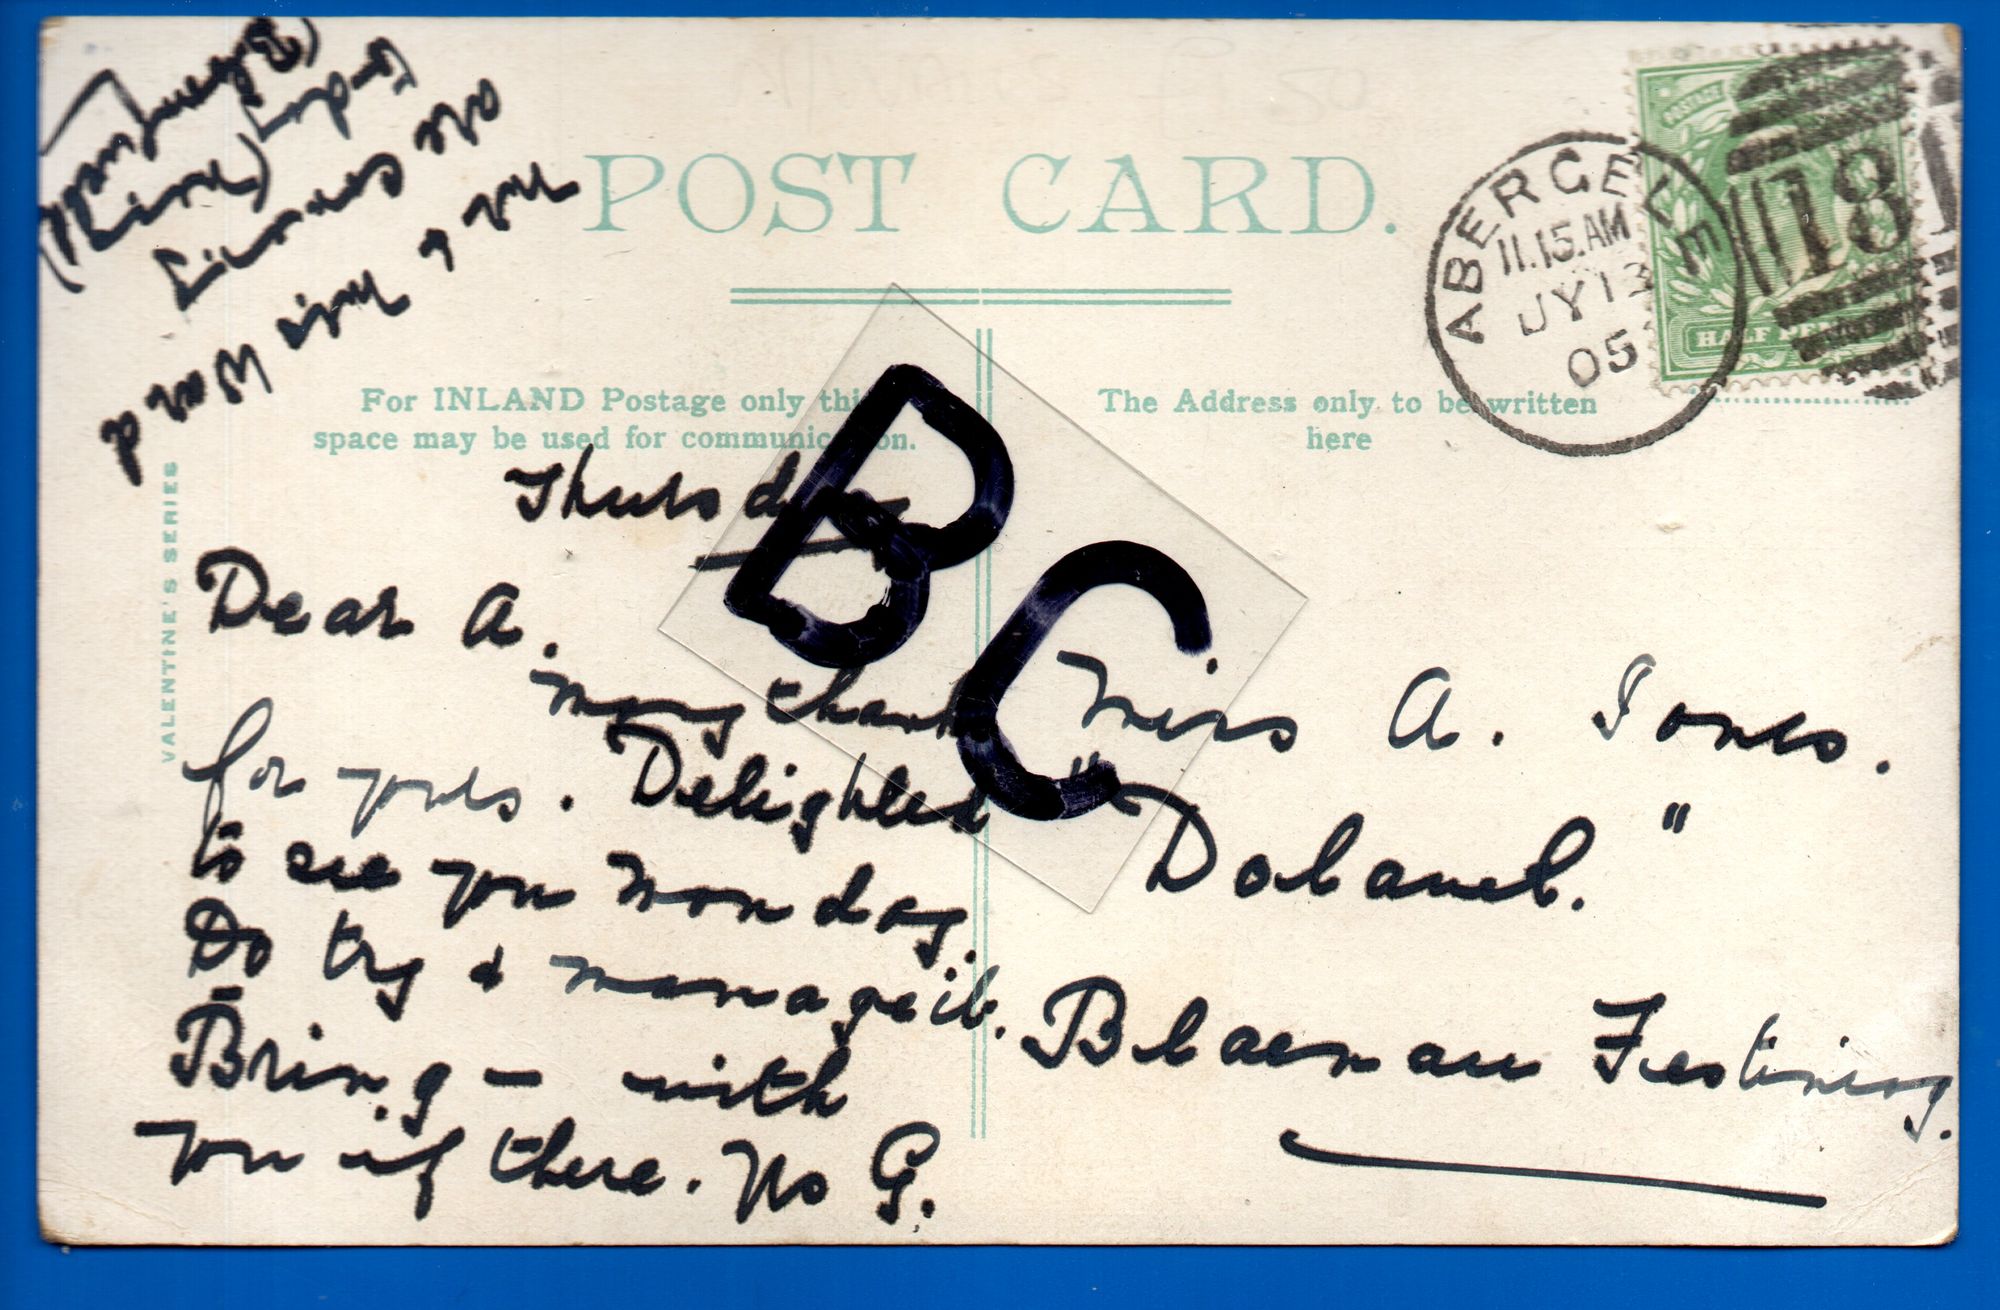 POST CARD.
For INLAND Postage only this
space may be used for communication.
The Address only to be written
here
VALENTINE'S SERIES
ABERGELE
11.15.AM
JY 13
05
18
POSTAGE
HALF PENNY
BC
Thursday
Dear A.
many thanks
for yours. Delighted
to see you Monday.
Do try & manage it.
Bring - with
you if there. No G.
Mr & Miss Ward
are coming
today
Miss A. Jones.
"Dolawel."
Blaenau Festiniog.